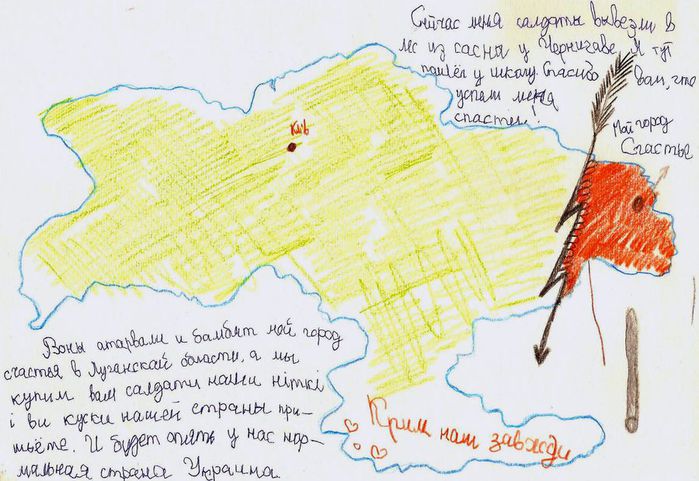 Сейчас меня салдаты вывезли в
лес из сасны у Чернигаве. Я тут
пашёл у школу. Спасибо вам, что
успели меня
спасти!
Май город
Счастье
Київ
Воны атарвали и бамбят мой город
счастья в Луганской области, а мы
купим вам салдати наши ніткі
і ви куски нашей страны при-
шьёте. И будет опять у нас нор-
мальная страна Украина
Крим наш завжди